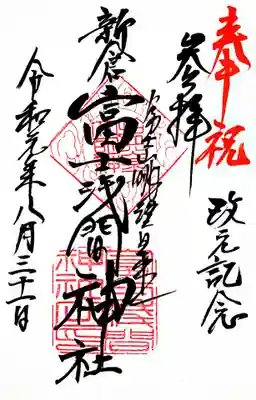 奉祝
改元記念
参拝
新倉
富士浅間神社
令和元年八月三十一日